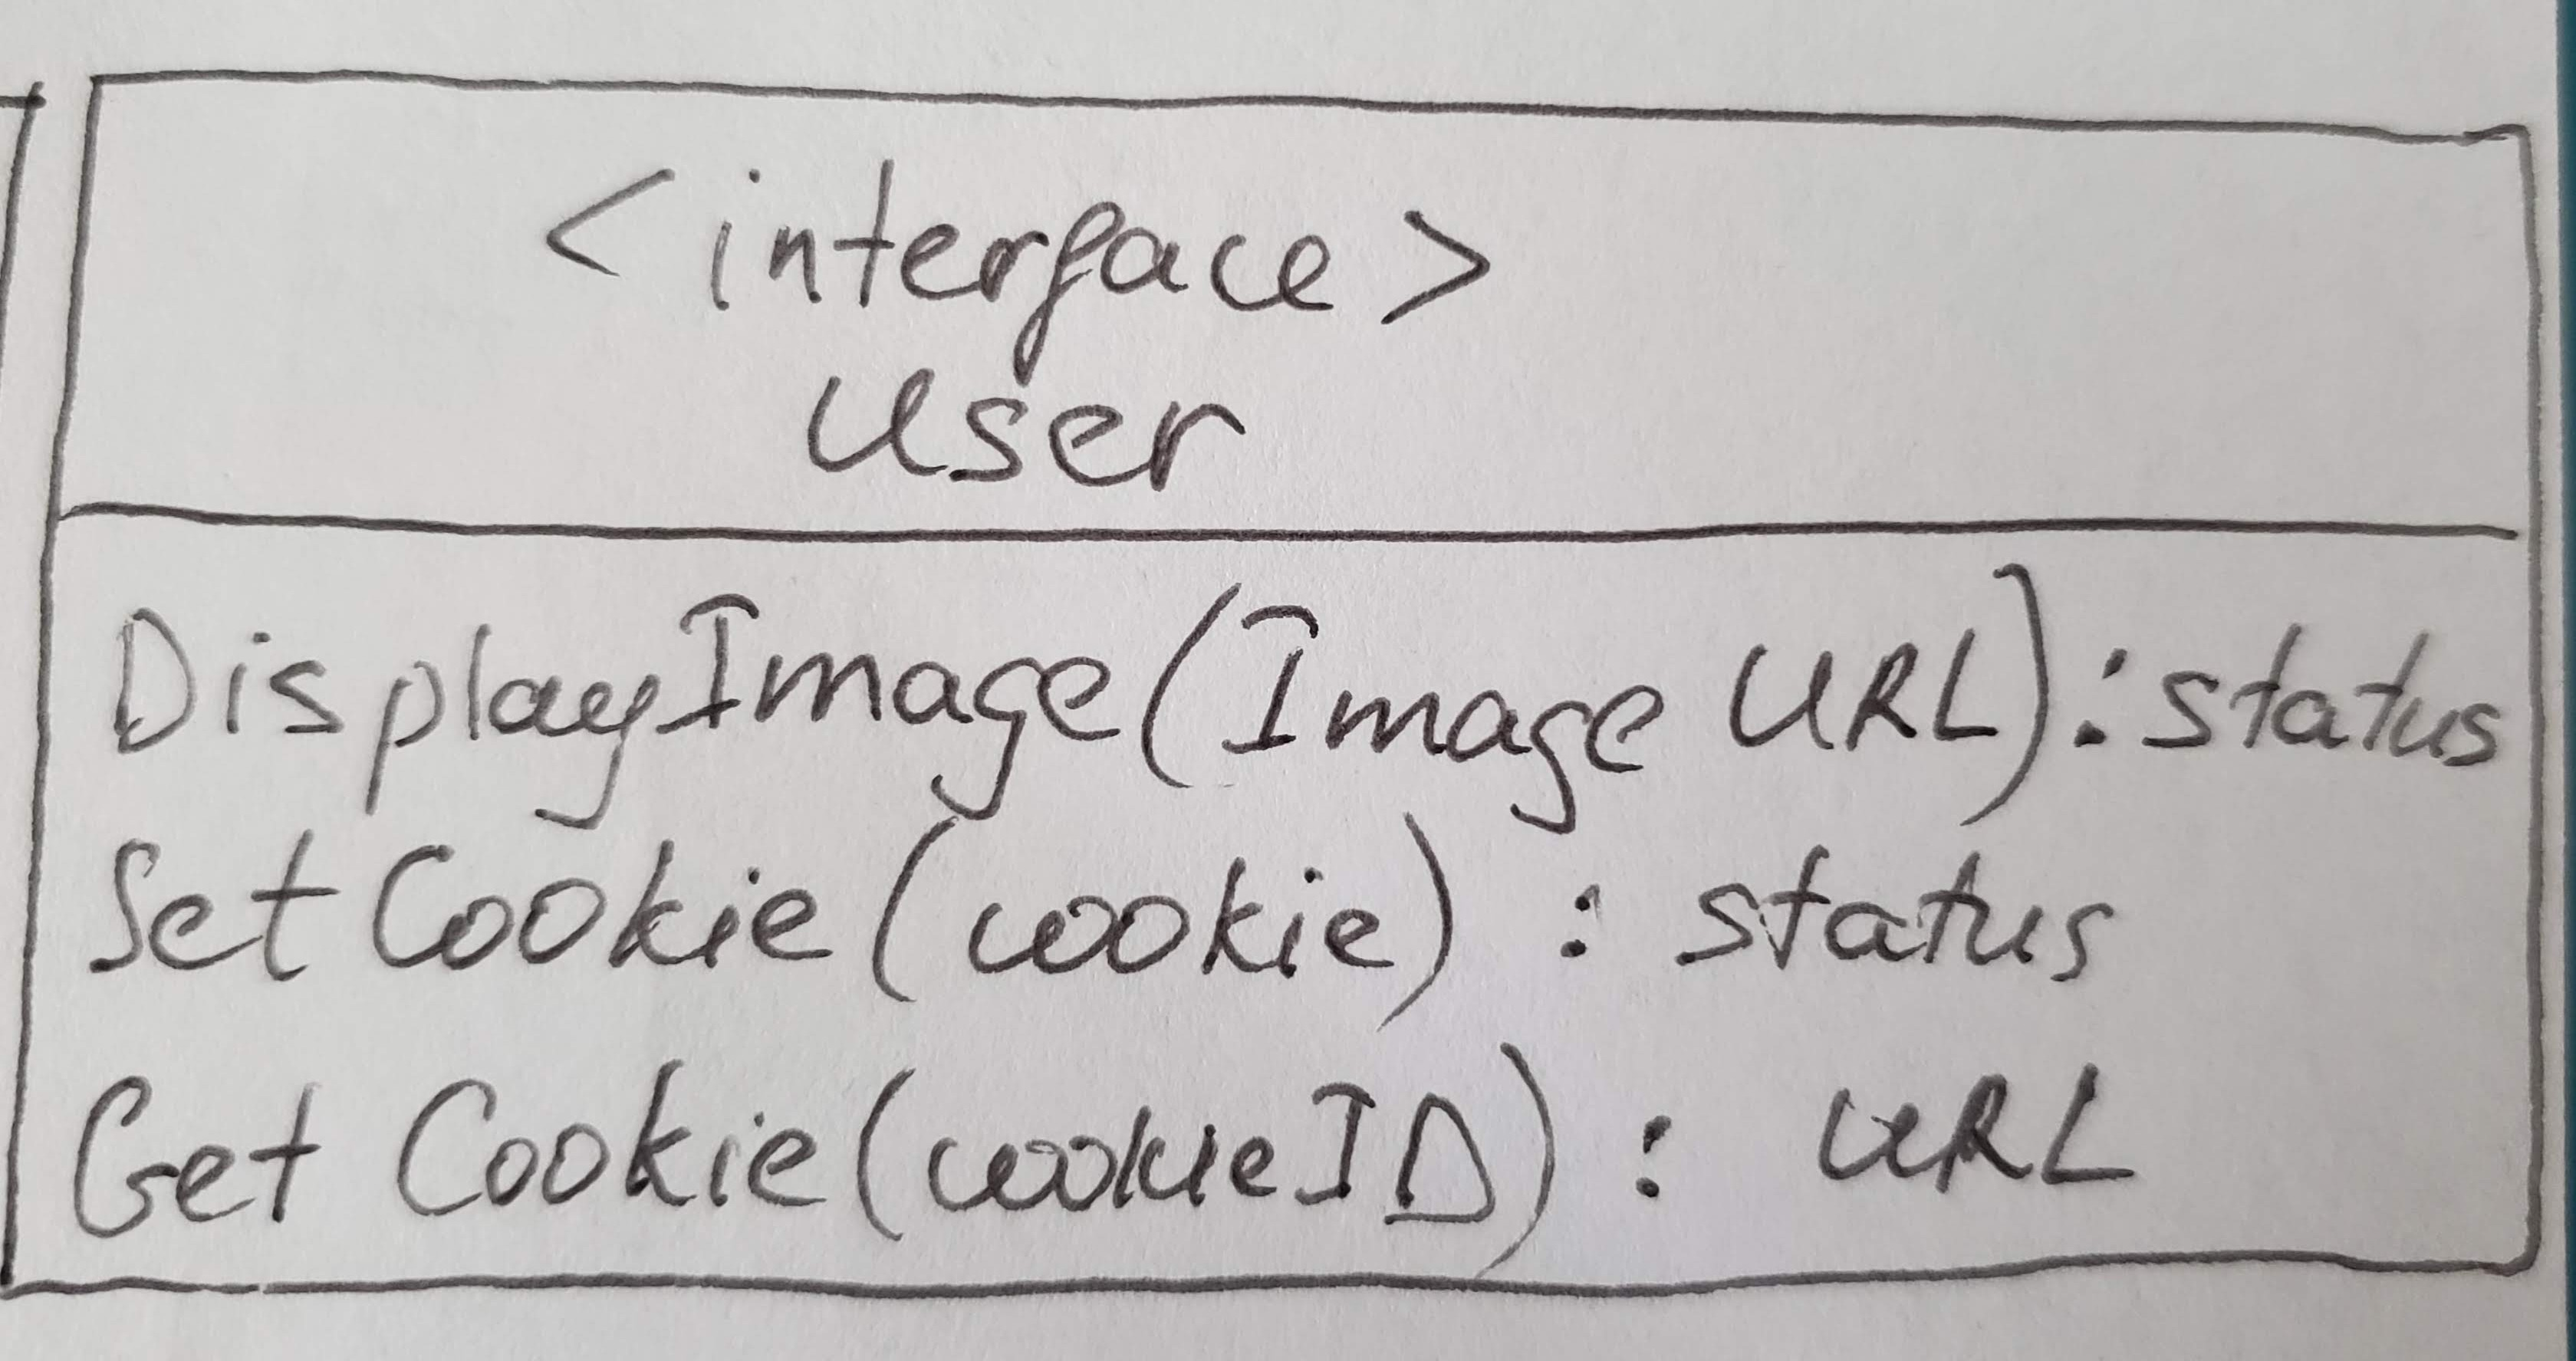 <interface>
User
DisplayImage(Image URL): status
Set Cookie (cookie) : status
Get Cookie (cookieID) : URL